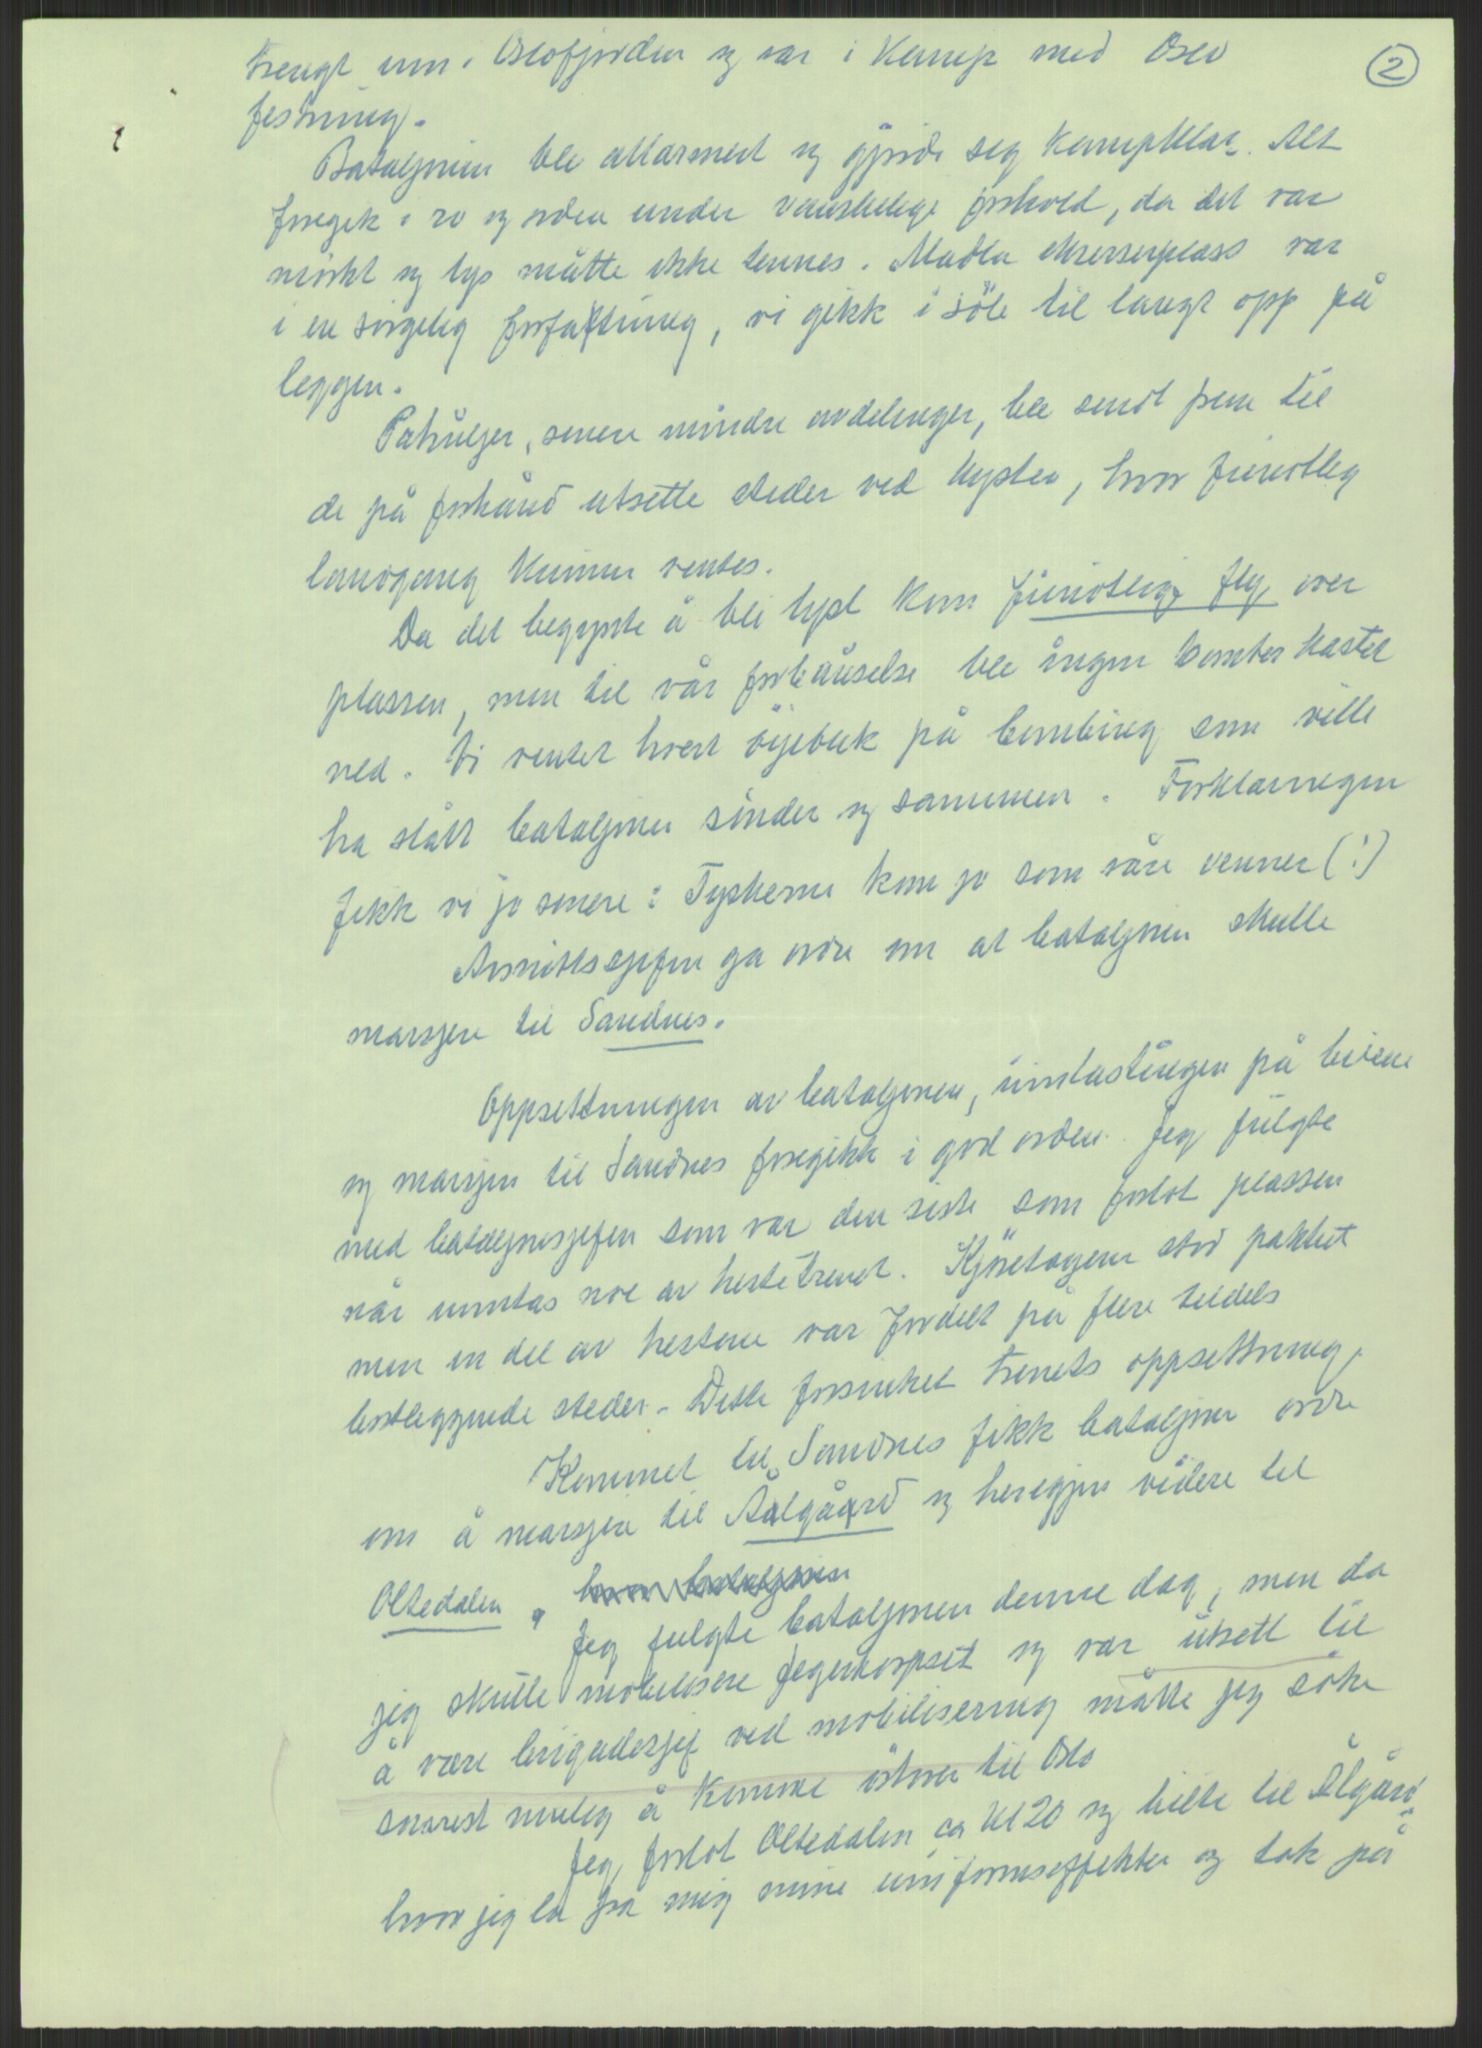 trengt inn i Oslofjorden og var i kamp med Oslo
②
festning.
Bataljonen ble allarmert og gjorde seg kampklar. Alt
foregik i ro og orden under vanskelige forhold, da det var
mørkt og lys måtte ikke tennes. Madla ekserserplass var
i en sørgelig forfatning, vi gikk i söle til langt opp på
leggen.
Patruljer, senere mindre avdelinger, ble sendt frem til
de på forhånd utsette steder ved kysten, hvor fiendtlig
landgang kunne ventes.
Da det begynte å bli lyst kom fiendtlige fly over
plassen, men til vår forbauselse ble ingen bomber kastet
ned. Vi ventet hvert öyeblik på bombing som ville
ha slått bataljonen sönder og sammen. Forklaringen
fikk vi jo senere: Tyskerne kom jo som våre venner (!)
Avsnittssjefen ga ordre om at bataljonen skulle
marsjere til Sandnes.
Oppsettningen av bataljonen, innlastingen på bilene
og marsjen til Sandnes foregikk i god orden. Jeg fulgte
med bataljonssjefen som var den siste som forlot plassen
når unntas noe av hestetrenet. Kjöretögene stod pakket
men en del av hestene var fordelt på flere tildels
bortliggende steder. Dette forsinket trenets oppsettning.
Kommet til Sandnes fikk bataljonen ordre
om å marsjere til Ålgård og herigjen videre til
Oltedalen. hvor bataljonen
Jeg fulgte bataljonen denne dag, men da
jeg skulle mobilisere Jegerkorpset og var utsett til
å være brigadesjef ved mobilisering måtte jeg söke
snarest mulig å komme östover til Oslo
Jeg forlot Oltedalen ca kl 20 og bilte til Ålgård
hvor jeg la fra mig mine uniformseffekter og tok på